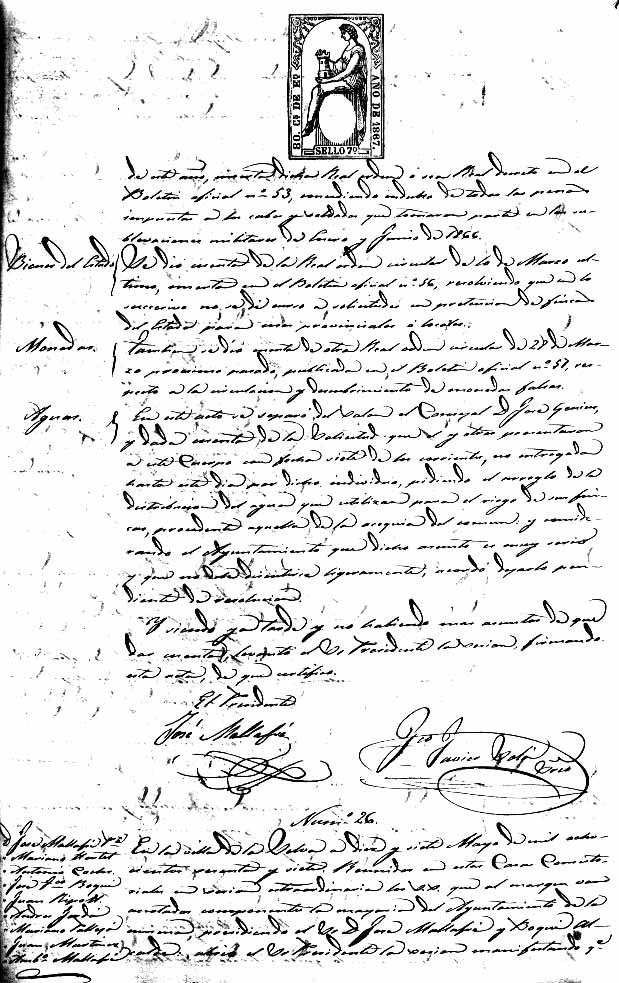 80 Cs DE Eo
AÑO DE 1867.
SELLO 7o
de este año, inserta dicha Real orden ó sea Real decreto en el
Boletin oficial no 53, concediendo indulto de todas las penas
impuestas a los cabos y soldados que tomaron parte en las su-
blevaciones militares de Enero y Junio de 1866.
Bienes del Estado
Se dió cuenta de la Real orden circular de 10 de Marzo ul-
timo, inserta en el Boletin oficial no 56, resolviendo que en lo
succesivo no se dé curso a solicitudes en pretension de fincas
del Estado para usos provinciales ó locales.
Monedas.
Tambien se dió cuenta de otra Real orden circular de 27 de Mar-
zo proximo pasado, publicada en el Boletin oficial no 57, res-
pecto a la circulacion y descubrimiento de monedas falsas.
Aguas.
En este acto se separó del Salon el Concejal D. José
y dada cuenta de la solicitud que el y otros presentaron
a este Cuerpo con fecha siete de los corrientes, no entregada
hasta este dia por dichos individuos, pidiendo el arreglo de la
distribucion del agua que utilizan para el riego de sus fin-
cas, procedente aquella de la acequia del comun; y conside-
rando el Ayuntamiento que dicho asunto es muy serio
y que no debe discutirse ligeramente, acordó dejarlo pen-
diente de resolucion.
Y siendo ya tarde y no habiendo mas asuntos de que
dar cuenta, levantó el Sr Presidente la sesion, firmando
esta acta, de que certifico.
El Presidente
José Mallafré
Fco Javier Srio
Numo 26.
D José Mallafré Pte
Mariano
Antonio
José Fco Boqué
Juan
Mariano
Juan Martinez
Mallafré
En la villa de la Selva a diez y siete Mayo de mil ocho-
cientos sesenta y siete Reunidos en estas Casas Consisto-
riales en sesion extraordinaria los SS. que al margen van
anotados componentes la mayoria del Ayuntamiento de la
misma, presidiendo el Sr D. José Mallafré y Boqué Al-
calde, abrió el Sr Presidente la sesion manifestando qe